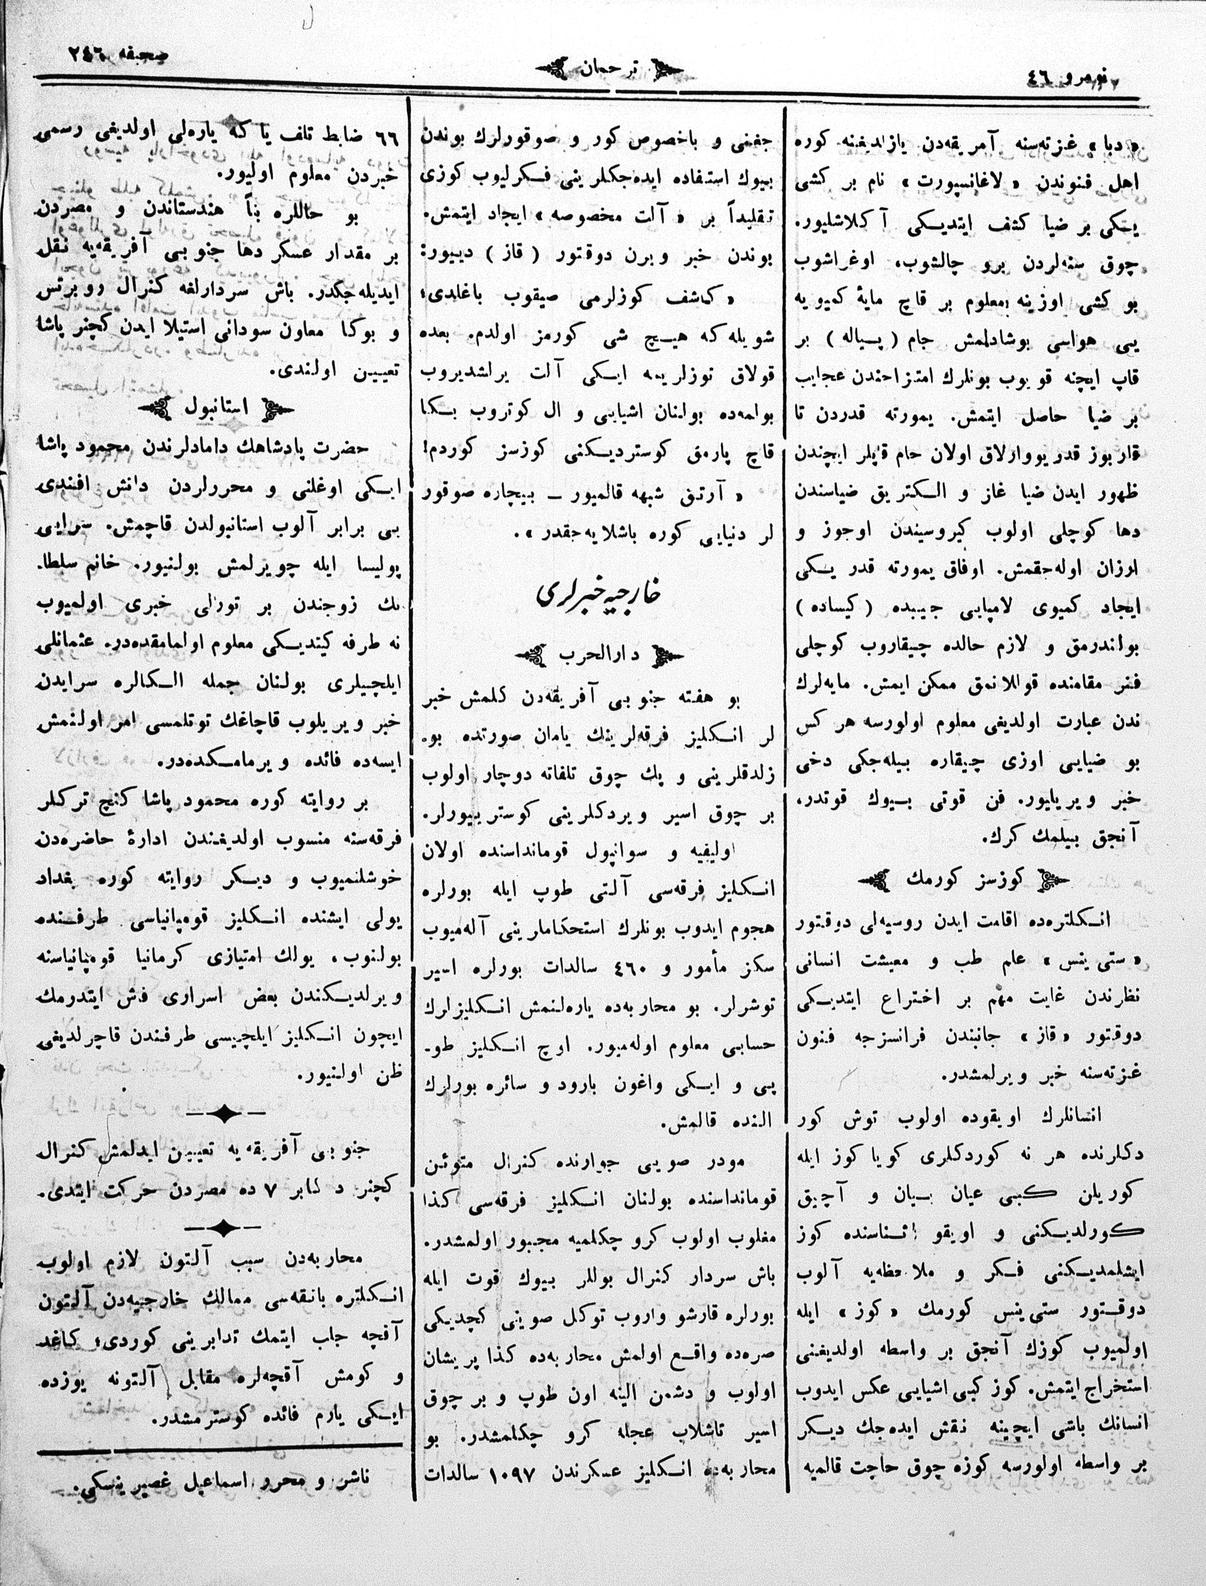 نومرو ٤٦
ترجمان
صحیفه ٢٤٦
« دبا » غزته‌سنه آمریقه‌دن یازلدیغنه کوره
اهل فنوندن « لاغانسپورت » نام بر کشی
یتکی بر ضیا کشف ایتدیکی آکلاشلیور.
چوق سنه‌لردن برو چالشوب، اوغراشوب
بو کشی اوزینه معلوم بر قاچ مایهٔ کمیویه
یی هواسی بوشادلمش جام ( پیاله ) بر
قاپ ایچنه قویوب بونلرك امتزاحندن عجایب
بر ضیا حاصل ایتمش. یمورته قدردن تا
قاربوز قدر یووارلاق اولان جام قاپلر ایچندن
ظهور ایدن ضیا غاز و الکتریق ضیاسندن
دها کوچلی اولوب کیروسیندن اوجوز و
ارزان اوله‌جقمش. اوفاق یمورته قدر یسکی
ایجاد کمیوی لامپایی جیبده ( کیساده )
بولندرمق و لازم حالده چیقاروب کوچلی
فنر مقامنده قوللانمق ممکن ایمش. مایه‌لرك
ندن عبارت اولدیغی معلوم اولورسه هر کس
بو ضیایی اوزی چیقاره بیله‌جکی دخی
خبر ویریلیور. فن قوتی بیوك قوتدر،
آنجق بیلمك کرك.
کوزسز کورمك
انکلتره‌ده اقامت ایدن روسیه‌لی دوقتور
« ستی ینس » علم طب و معیشت انسانی
نظرندن غایت مهم بر اختراع ایتدیکی
دوقتور « قاز » جانبندن فرانسزجه فنون
غزته‌سنه خبر ویرلمشدر.
انسانلرك اویقوده اولوب توش کور
دکلرنده هر نه کوردکلری کویا کوز ایله
کوریلن کبی عیان بیان و آچیق
کورلدیکنی و اویقو اثناسنده کوز
ایشلمدیکنی فکر و ملاحظه‌یه آلوب
دوقتور ستی ینس کورمك « کوز » ایله
اولمیوب کوزك آنجق بر واسطه اولدیغنی
استخراج ایتمش. کوز کبی اشیایی عکس ایدوب
انسانك باشی ایچینه نقش ایده‌جك دیکر
بر واسطه اولورسه کوزه چوق حاجت قالمیه
جغنی و باخصوص کور و صوقورلرك بوندن
بیوك استفاده ایده‌جکلرینی فکرلیوب کوزی
تقلیداً بر « آلت مخصوصه » ایجاد ایتمش.
بوندن خبر ویرن دوقتور ( قاز ) دیییور:
« کاشف کوزلرمی صیقوب باغلدی؛
شویله که هیچ شی کورمز اولدم. بعده
قولاق توزلریمه ایکی آلت یراشدیروب
بولمه‌ده بولنان اشیایی و ال کوتروب بکا
قاچ پارمق کوستردیکنی کوزسز کوردم!
« آرتق شبهه قالمیور ـ بیچاره صوقور
لر دنیایی کوره باشلایه‌جقدر ».
خارجیه خبرلری
دارالحرب
بو هفته جنوبی آفریقه‌دن کلمش خبر
لر انکلیز فرقه‌لرینك یامان صورتده بو.
زلدقلرینی و پك چوق تلفاته دوچار اولوب
بر چوق اسیر ویردکلرینی کوسترییورلر.
اولیفیه و سوانپول قوماندا‌سنده اولان
انکلیز فرقه‌سی آلتی طوپ ایله بورلره
هجوم ایدوب بونلرك استحکاملرینی آله‌میوب
سکز مأمور و ٤٦٠ سالدات بورلره اسیر
توشرلر. بو محاربه‌ده یاره‌لنمش انکلیزلرك
حسابی معلوم اوله‌میور. اوچ انکلیز طو-
پی و ایکی واغون بارود و سائره بورلرك
النده قالمش.
مودر صویی جوارنده کنرال متوئن
قوماندا‌سنده بولنان انکلیز فرقه‌سی کذا
مغلوب اولوب کرو چکلمیه مجبور اولمشدر.
باش سردار کنرال بوللر بیوك قوت ایله
بورلره قارشو واروب توکل صوینی کچدیکی
صره‌ده واقع اولمش محاربه‌ده کذا پریشان
اولوب و دشمن الینه اون طوپ و بر چوق
اسیر تاشلاب عجله کرو چکلمشدر. بو
محاربه‌ده انکلیز عسکرندن ١٠٩٧ سالدات
٦٦ ضابط تلف یا که یاره‌لی اولدیغی رسمی
خبردن معلوم اولیور.
بو حاللره بناً هندستاندن و مصردن
بر مقدار عسکر دها جنوبی آفریقه‌یه نقل
ایدیله‌جکدر. باش سردارلغه کنرال روبرتس
و بوکا معاون سودانی استیلا ایدن کچنر پاشا
تعیین اولندی.
استانبول
حضرت پادشاهك دامادلرندن محمود پاشا
ایکی اوغلنی و محررلردن دانش افندی
یی برابر آلوب استانبولدن قاچمش. سرایی
پولیسا ایله چویرلمش بولنیور. خانم سلطا.
نك زوجندن بر تورلی خبری اولمیوب
نه طرفه کیتدیکی معلوم اولمامقده‌در. عثمانلی
ایلچیلری بولنان جمله الکالره سرایدن
خبر ویریلوب قاچاغك توتلمسی امر اولنمش
ایسه‌ده فائده ویرمامکده‌در.
بر روایته کوره محمود پاشا کنج ترکلر
فرقه‌سنه منسوب اولدیغندن ادارهٔ حاضره‌دن
خوشلنمیوب و دیکر روایته کوره بغداد
یولی ایشنده انکلیز قومپانیاسی طرفنده
بولنوب، یولك امتیازی کرمانیا قومپانیاسنه
ویرلدیکندن بعض اسراری فاش ایتدرمك
ایچون انکلیز ایلچیسی طرفندن قاچرلدیغی
ظن اولنیور.
جنوبی آفریقه‌یه تعیین ایدلمش کنرال
کچنر دکابر ٧ ده مصردن حرکت ایتدی.
محاربه‌دن سبب آلتون لازم اولوب
انکلتره بانقه‌سی ممالك خارجیه‌دن آلتون
آقچه جلب ایتمك تدابرینی کوردی؛ کاغد
و کومش آقچه‌لره مقابل آلتونه یوزده
ایکی یارم فائده کوسترمشدر.
ناشر و محرر اسماعیل غصپرینسکی.